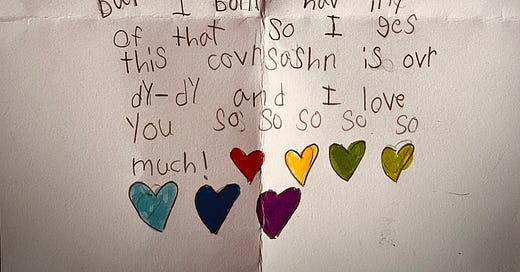 But I don't hav iny
Of that So I ges
this convrsashn is ovr
dY-dY and I love
You so so so so so
much!